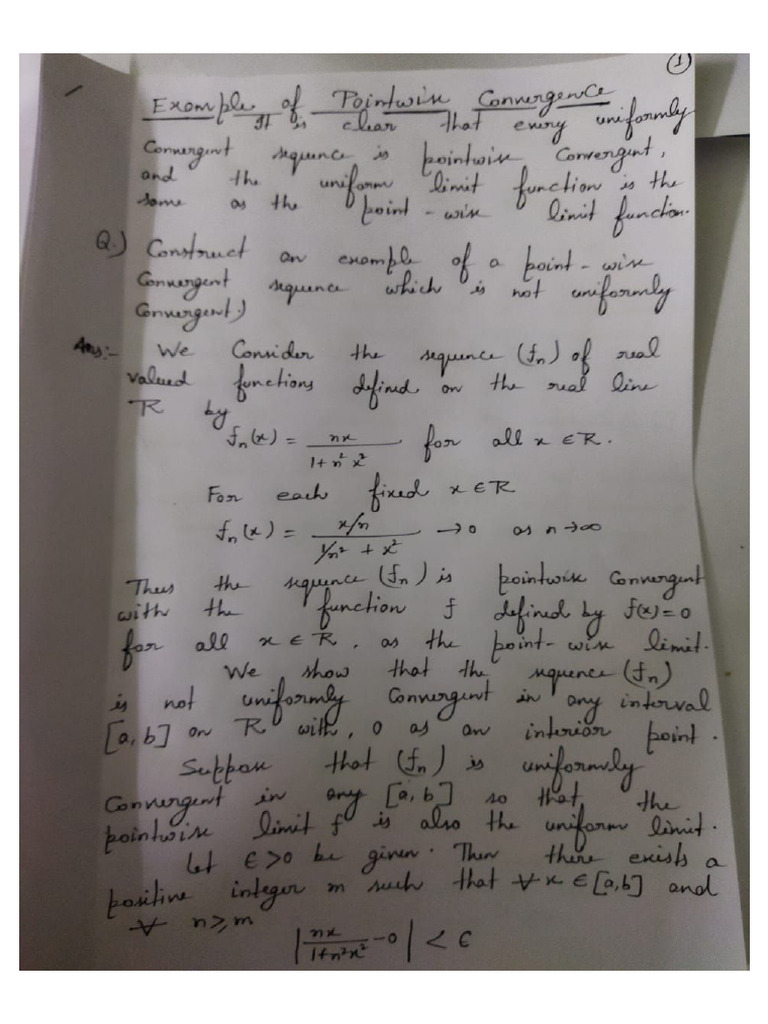 ①
Example of Pointwise Convergence
It is clear that every uniformly
Convergent sequence is pointwise Convergent,
and the uniform limit function is the
same as the point-wise limit function.
Q.) Construct an example of a point-wise
Convergent sequence which is not uniformly
Convergent.)
Ans:- We Consider the sequence (fn) of real
valued functions defined on the real line
R by
fn(x) = nx / (1+n²x²) for all x ∈ R.
For each fixed x ∈ R
fn(x) = (x/n) / (1/n² + x²) → 0 as n → ∞
Thus the sequence (fn) is pointwise Convergent
with the function f defined by f(x)=0
for all x ∈ R, as the point-wise limit.
We show that the sequence (fn)
is not uniformly Convergent in any interval
[a,b] on R with, 0 as an interior point.
Suppose that (fn) is uniformly
Convergent in any [a,b] so that, the
pointwise limit f is also the uniform limit.
Let ε>0 be given. Then there exists a
positive integer m such that ∀ x ∈ [a,b] and
∀ n≥m
|nx / (1+n²x²) - 0| < ε